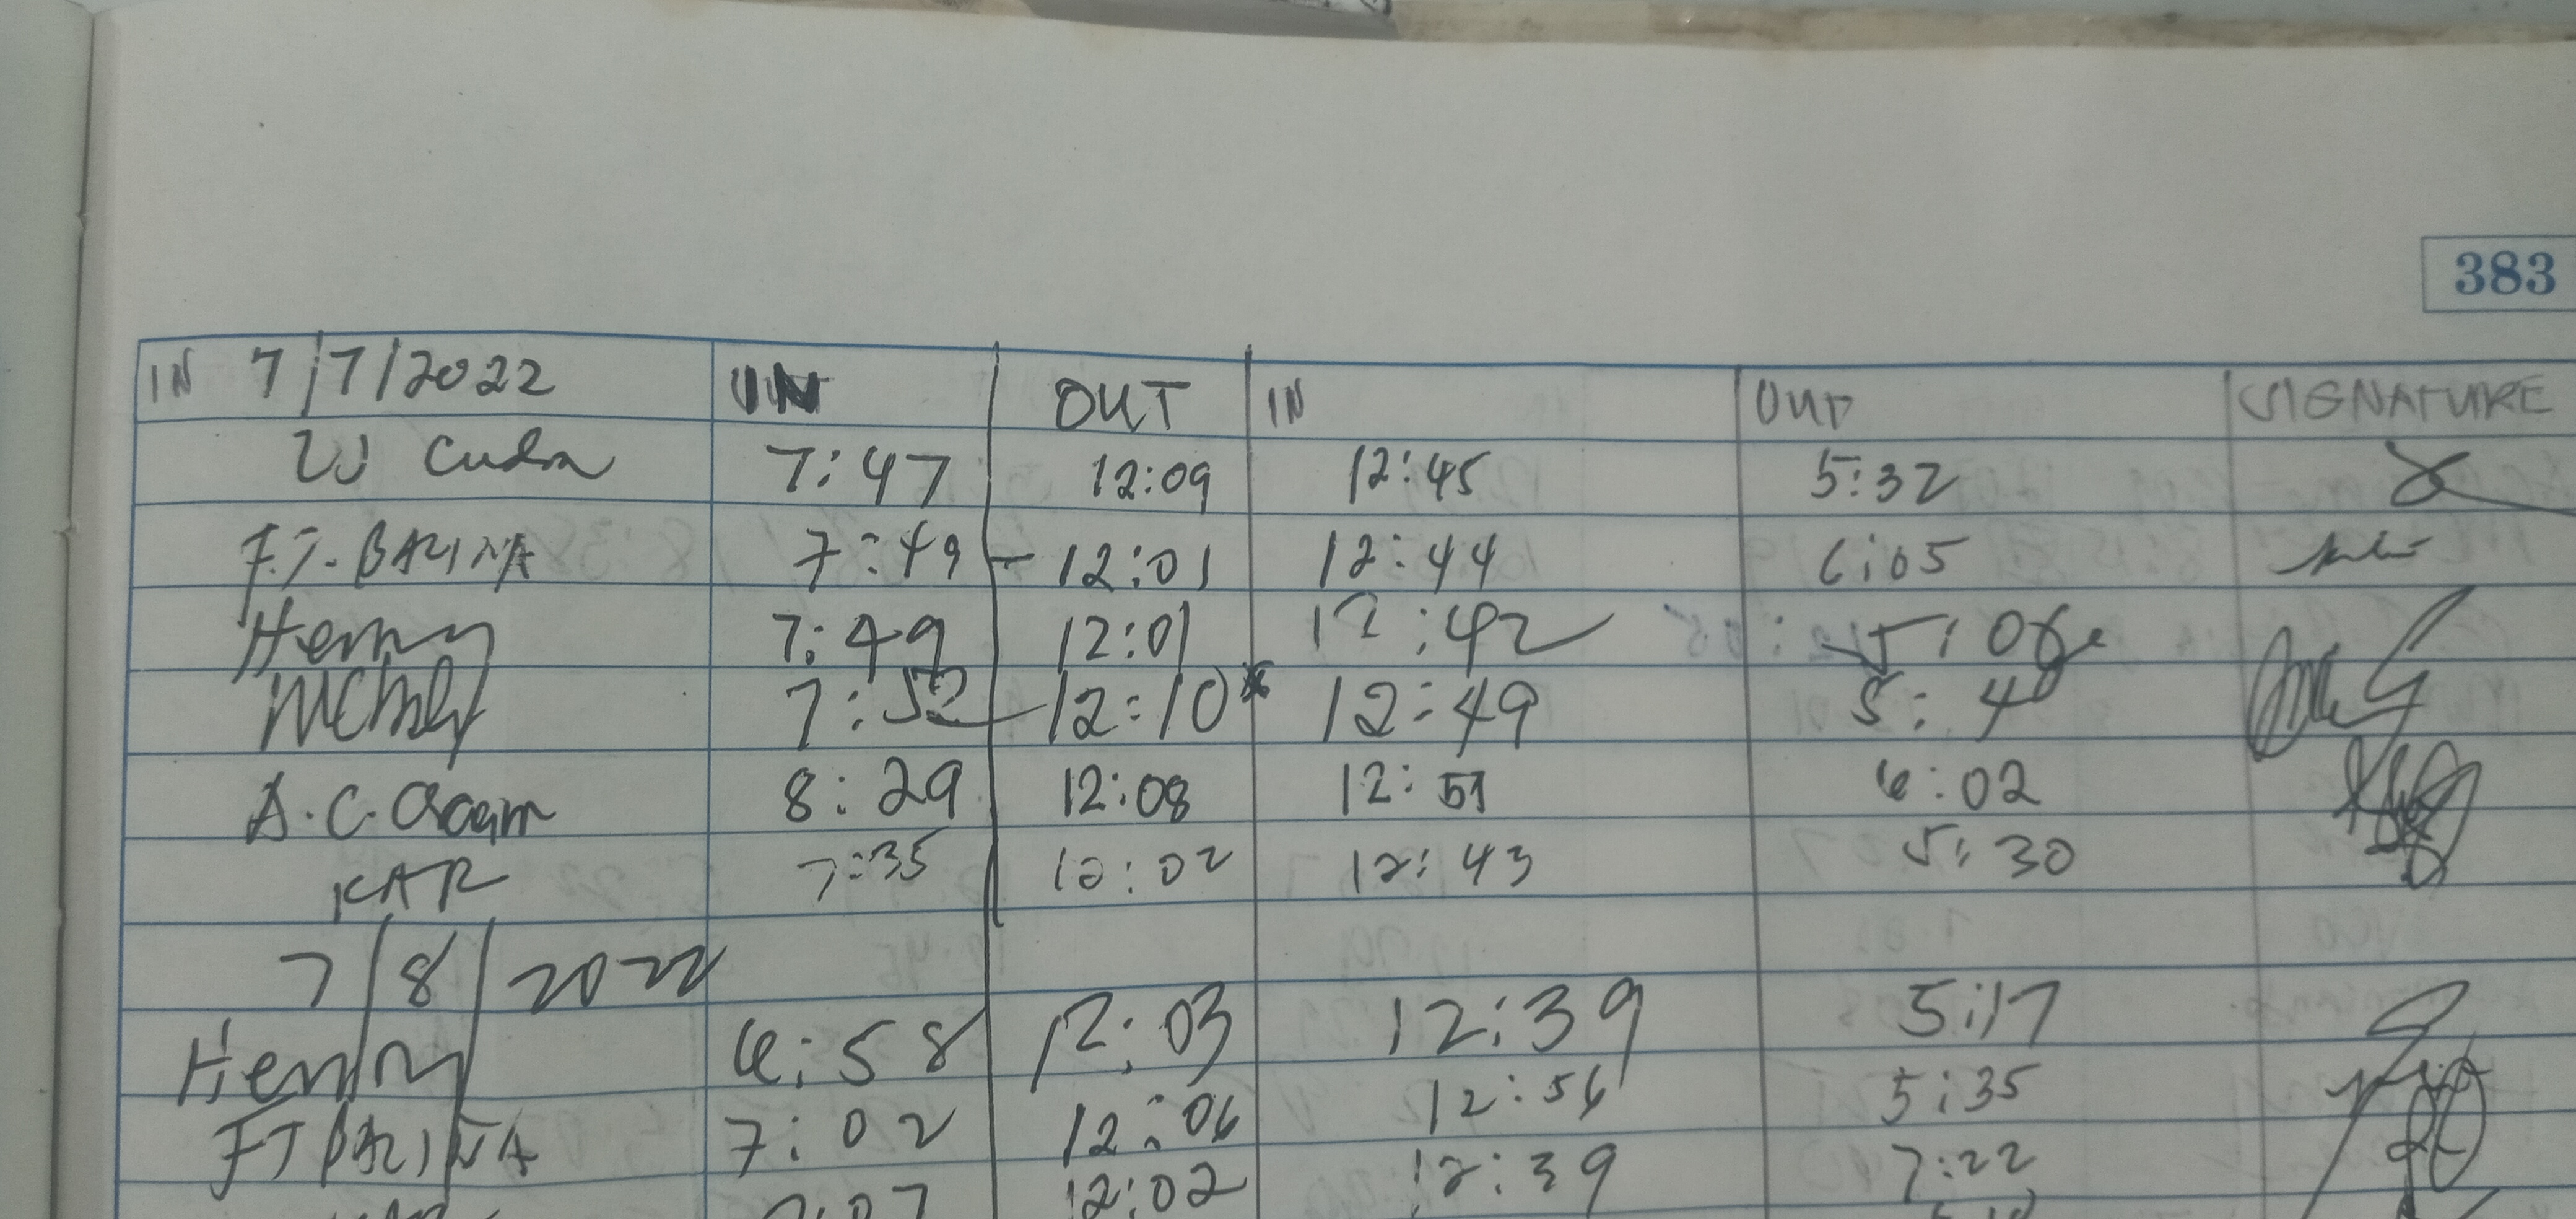 383
IN 7/7/2022 IN OUT IN OUT SIGNATURE
7:47 12:09 12:45 5:32
F.T. BAZINA 7:49 - 12:01 12:44 6:05
Henry 7:49 12:01 12:42 5:06
7:52 12:10 12:49 5:4
A.C. 8:29 12:08 12:51 6:02
KAR 7:35 12:02 12:43 5:30
7/8/2022
Henry 6:58 12:03 12:39 5:17
FT BAZINA 7:02 12:06 12:56 5:35
7:07 12:02 12:39 7:22